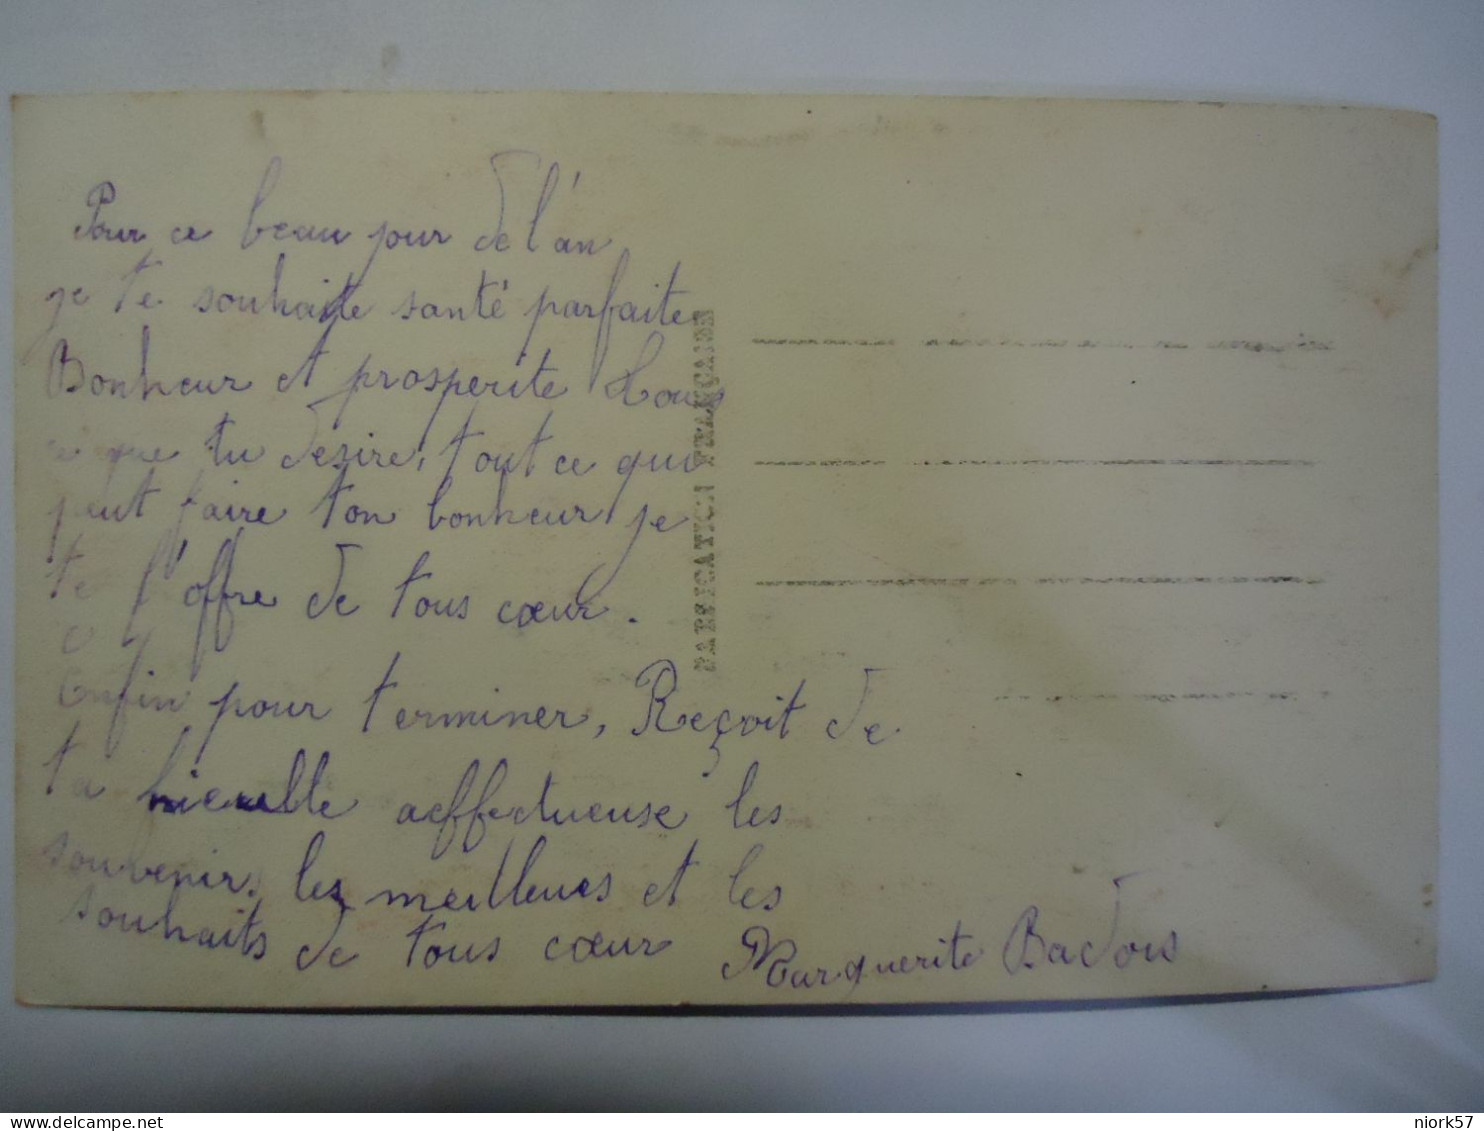 Pour ce beau jour de l'an
je te souhaite santé parfaite
Bonheur et prosperite
ce que tu desire, tout ce qui
peut faire ton bonheur je
te l'offre de tous cœur.
Enfin pour terminer, Reçoit de
ta aeffectueuse les
souvenirs les meilleues et les
souhaits de tous cœur
Marguerite Badois
FABRICATION FRANÇAISE
niork57